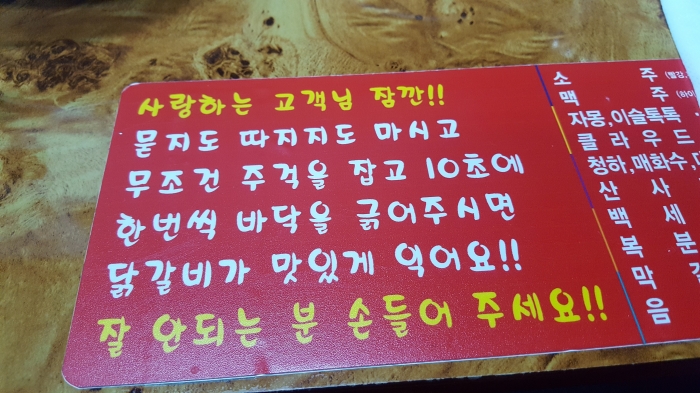 사랑하는 고객님 잠깐!!
묻지도 따지지도 마시고
무조건 주걱을 잡고 10초에
한번씩 바닥을 긁어주시면
닭갈비가 맛있게 익어요!!
잘 안되는 분 손들어 주세요!!
소 주
맥 주
자몽,이슬톡톡
클라우드
청하,매화수,
산 사
백 세
복 분
막
음